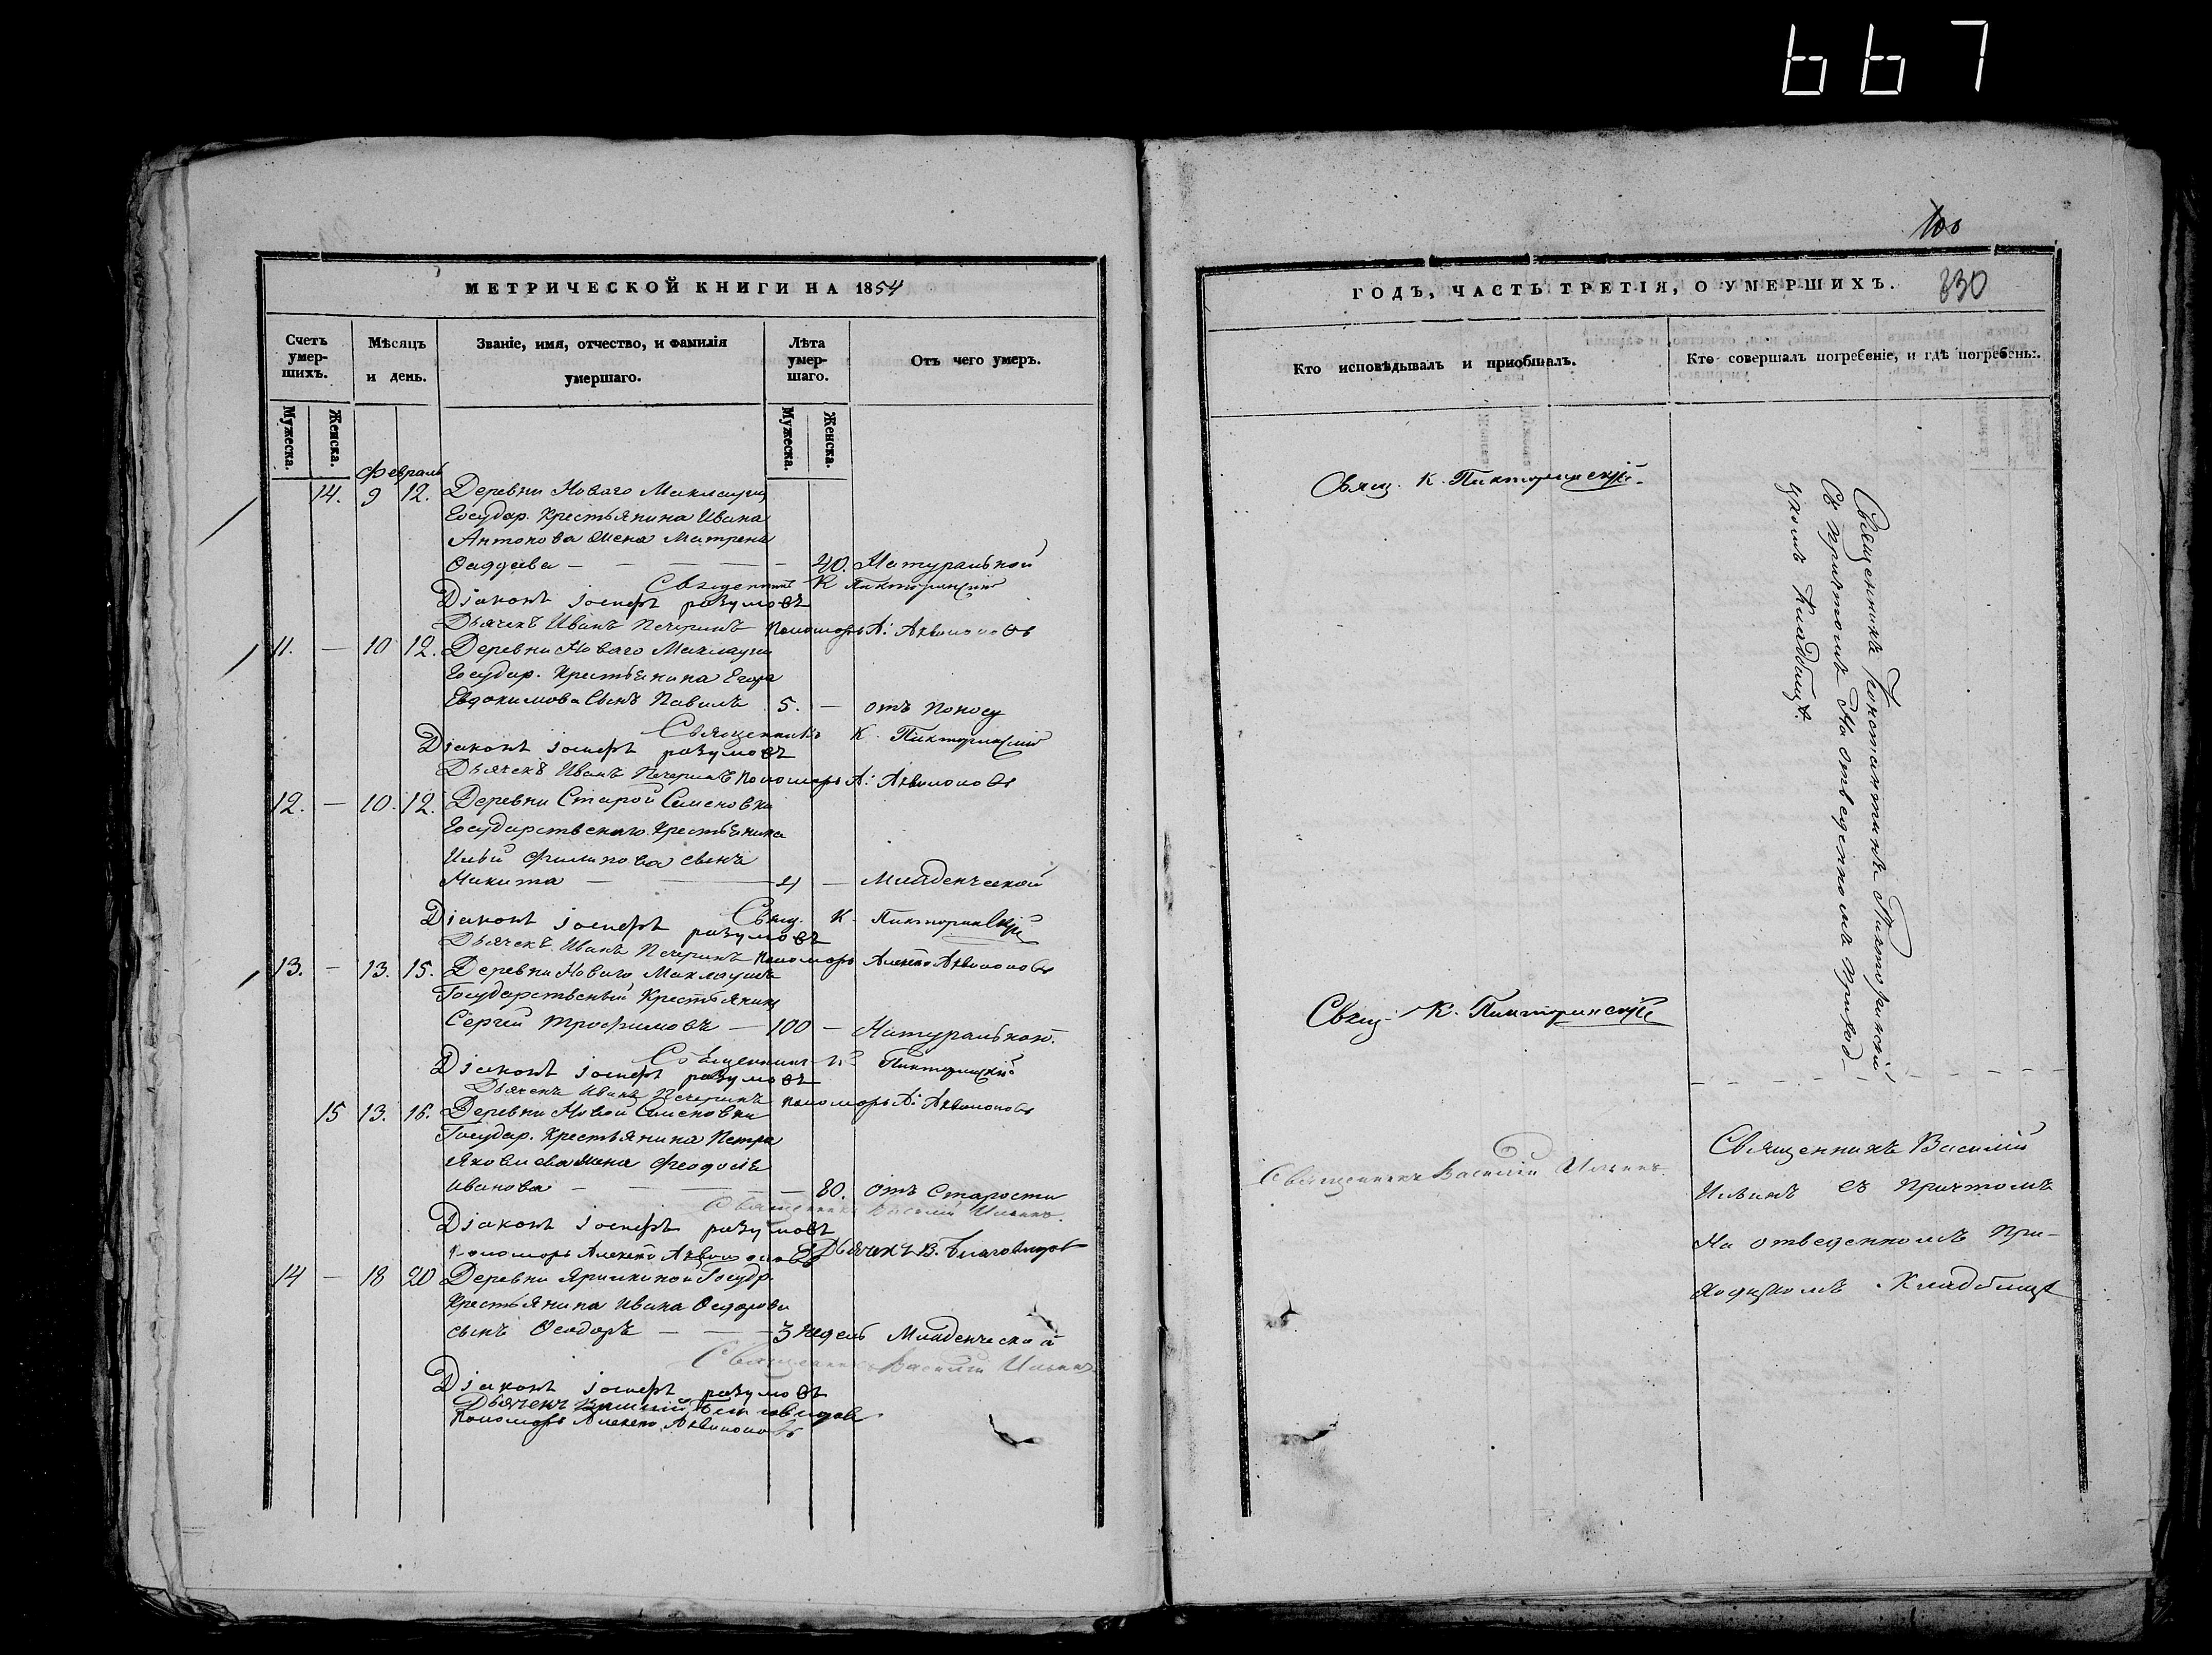 667
МЕТРИЧЕСКОЙ КНИГИ НА 1854
Счетъ умер-шихъ.
Мѣсяцъ и день.
Званіе, имя, отчество, и фамилія умершаго.
Лѣта умер-шаго.
Отъ чего умеръ.
Мужеска.
Женска.
Мужеска.
Женска.
Февраль
14. 9 12. Деревни Новаго Маклауша
Государ. Крестьянина Ивана
Антонова жена Матрена
Фаддеева — 40. Натуральной
Священникъ К Пикторинскій
Діаконъ Іосифъ Разумовъ
Дьячекъ Иванъ Печеринъ Пономарь А:
11. — 10 12. Деревни Новаго Маклауша
Государ. Крестьянина Егора
Евдокимова Сынъ Павелъ 5. — отъ Поносу
Священникъ К. Пикторинскій
Діаконъ Іосифъ Разумовъ
Дьячекъ Иванъ Печеринъ Пономарь А:
12. — 10. 12. Деревни Старой Семеновки
Государственаго Крестьянина
Ильи Филипова сынъ
Никита — 4 — Младенческой
Свящ. К. Пикторинскій
Діаконъ Іосифъ Разумовъ
Дьячекъ Иванъ Печеринъ Пономарь Алексѣй
13. — 13. 15. Деревни Новаго Маклауша
Государственый Крестьянинъ
Сергій Трофимовъ — 100 — Натуральной.
Священникъ К. Пикторинскій
Діаконъ Іосифъ Разумовъ
Дьячекъ Иванъ Печеринъ Пономарь А:
15 13. 16. Деревни Новой Семеновки
Государ. Крестьянина Петра
Яковлева жена Феодосья
Иванова — 80. отъ Старости
Священникъ Василій Ильинъ.
Діаконъ Іосифъ Разумовъ
Пономарь Алексѣй Дьячекъ В. Благовидовъ
14 — 18 20 Деревни Ярилкиной Госудр.
Крестьянина Ивана Федорова
сынъ Феодоръ — 3 недель Младенческой
Священникъ Василій Ильинъ
Діаконъ Іосифъ Разумовъ
Дьячекъ Василій Благовидовъ
Пономарь Алексѣй
100
ГОДЪ, ЧАСТЬ ТРЕТІЯ, О УМЕРШИХЪ.
330
Кто исповѣдывалъ и пріобщалъ.
Кто совершалъ погребеніе, и гдѣ погребены.
Свящ. К. Пикторинскій.
Священникъ Константинъ Пикторинскій
Съ причтомъ На отведенномъ приход-
скомъ Кладбищѣ.
Свящ. К. Пикторинскій
Священникъ Василій Ильинъ.
Священникъ Василій
Ильинъ съ причтомъ
На отведенномъ При-
ходскомъ Кладбищѣ